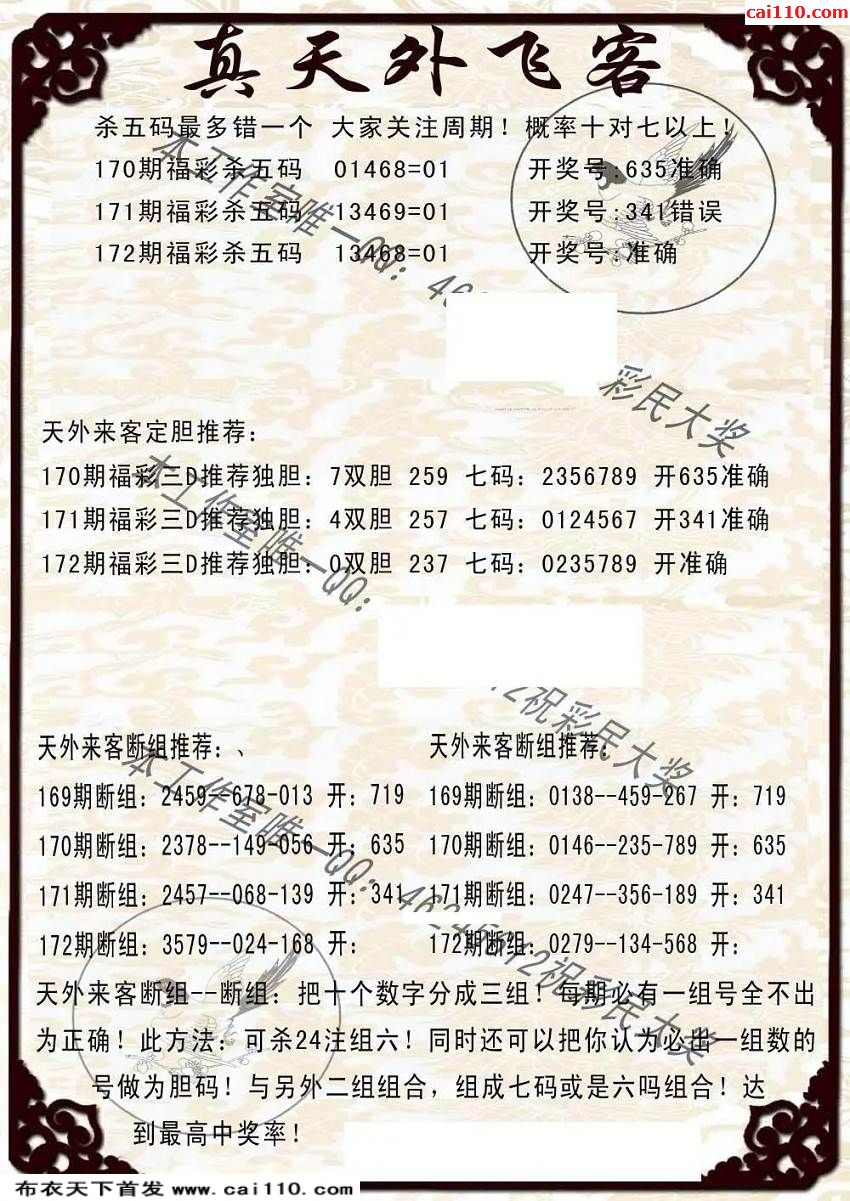 cai110.com
真天外飞客
杀五码最多错一个 大家关注周期！概率十对七以上！
170期福彩杀五码 01468=01 开奖号:635准确
171期福彩杀五码 13469=01 开奖号:341错误
172期福彩杀五码 13468=01 开奖号:准确
本工作室唯一QQ：46
彩民大奖
天外来客定胆推荐：
170期福彩三D推荐独胆：7双胆 259 七码：2356789 开635准确
171期福彩三D推荐独胆：4双胆 257 七码：0124567 开341准确
172期福彩三D推荐独胆：0双胆 237 七码：0235789 开准确
本工作室唯一QQ：
2祝彩民大奖
天外来客断组推荐：、
169期断组：2459--678-013 开：719
170期断组：2378--149-056 开：635
171期断组：2457--068-139 开：341
172期断组：3579--024-168 开：
天外来客断组推荐：
169期断组：0138--459-267 开：719
170期断组：0146--235-789 开：635
171期断组：0247--356-189 开：341
172期断组：0279--134-568 开：
本工作室唯一QQ：
祝彩民大奖
天外来客断组--断组：把十个数字分成三组！每期必有一组号全不出
为正确！此方法：可杀24注组六！同时还可以把你认为必出一组数的
号做为胆码！与另外二组组合，组成七码或是六吗组合！达
到最高中奖率！
布衣天下首发 www.cai110.com